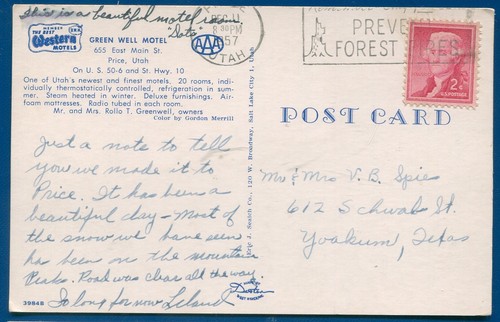 This is a beautiful motel too.
"Dots"
MEMBER
THE BEST
Western
MOTELS
GREEN WELL MOTEL
655 East Main St.
Price, Utah
On U. S. 50-6 and St. Hwy. 10
AAA
One of Utah's newest and finest motels. 20 rooms, individually
thermostatically controlled, refrigeration in summer.
Steam heated in winter. Deluxe furnishings. Airfoam
mattresses. Radio tubed in each room.
Mr. and Mrs. Rollo T. Greenwell, owners
Color by Gordon Merrill
8 30 PM
57
UTAH
PREVENT
FOREST FIRES
2¢
U.S. POSTAGE
POST CARD
Just a note to tell
you we made it to
Price. It has been a
beautiful day - most of
the snow we have seen
has been on the mountain
Peaks. Road was clear all the way.
So long for now Leland
39848
Eric J. Seaich Co., 120 W. Broadway, Salt Lake City 1, Utah
Dexter
WEST NYACK, N.Y.
Mr & Mrs V. B. Spies
612 Schwab St.
Yoakum, Texas